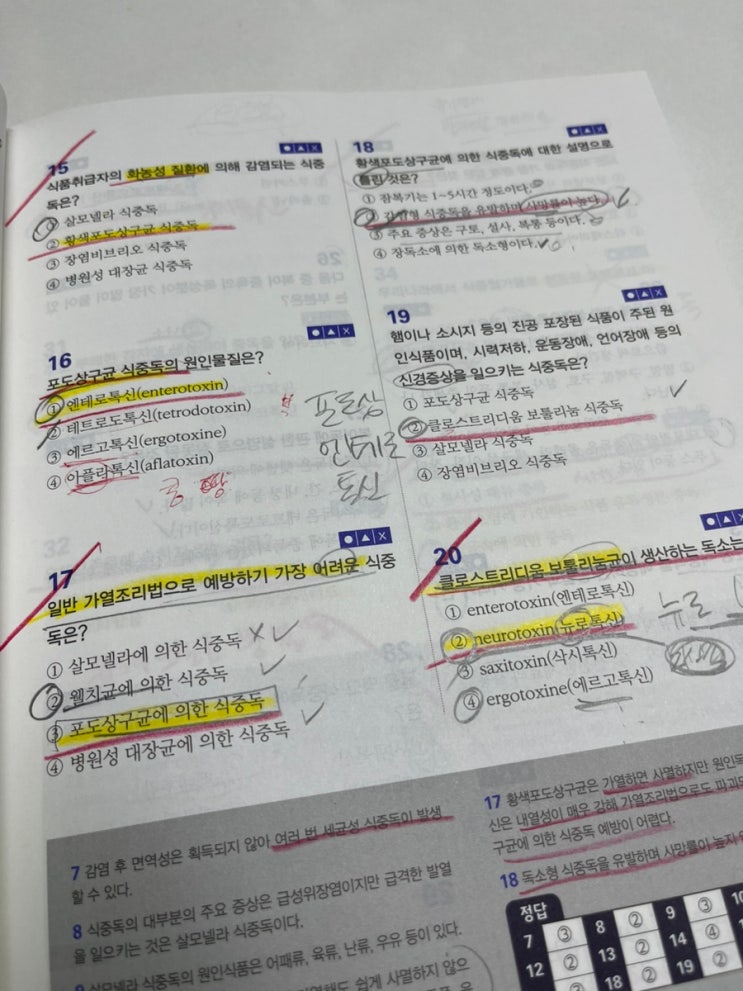 15
식품취급자의 화농성 질환에 의해 감염되는 식중
독은?
① 살모넬라 식중독
② 황색포도상구균 식중독
③ 장염비브리오 식중독
④ 병원성 대장균 식중독
16
포도상구균 식중독의 원인물질은?
① 엔테로톡신(enterotoxin)
② 테트로도톡신(tetrodotoxin)
③ 에르고톡신(ergotoxine)
④ 아플라톡신(aflatoxin)
포도상
엔테로
톡신
콩
17
일반 가열조리법으로 예방하기 가장 어려운 식중
독은?
① 살모넬라에 의한 식중독
② 웰치균에 의한 식중독
③ 포도상구균에 의한 식중독
④ 병원성 대장균에 의한 식중독
18
황색포도상구균에 의한 식중독에 대한 설명으로
틀린 것은?
① 잠복기는 1~5시간 정도이다.
② 감염형 식중독을 유발하며 사망률이 높다.
③ 주요 증상은 구토, 설사, 복통 등이다.
④ 장독소에 의한 독소형이다.
19
햄이나 소시지 등의 진공 포장된 식품이 주된 원
인식품이며, 시력저하, 운동장애, 언어장애 등의
신경증상을 일으키는 식중독은?
① 포도상구균 식중독
② 클로스트리디움 보툴리눔 식중독
③ 살모넬라 식중독
④ 장염비브리오 식중독
20
클로스트리디움 보툴리눔균이 생산하는 독소는
① enterotoxin(엔테로톡신)
② neurotoxin(뉴로톡신)
③ saxitoxin(삭시톡신)
④ ergotoxine(에르고톡신)
뉴로
7 감염 후 면역성은 획득되지 않아 여러 번 세균성 식중독이 발생
할 수 있다.
8 식중독의 대부분의 주요 증상은 급성위장염이지만 급격한 발열
을 일으키는 것은 살모넬라 식중독이다.
9 살모넬라 식중독의 원인식품은 어패류, 육류, 난류, 우유 등이 있다.
17 황색포도상구균은 가열하면 사멸하지만 원인독
신은 내열성이 매우 강해 가열조리법으로도 파괴되
구균에 의한 식중독 예방이 어렵다.
18 독소형 식중독을 유발하며 사망률이 높지
정답
7 ③ 8 ② 9 ③ 10
12 ② 13 ② 14 ④
② 18 ② 19 ②